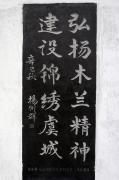 弘杨木兰精神
建设锦绣虞城